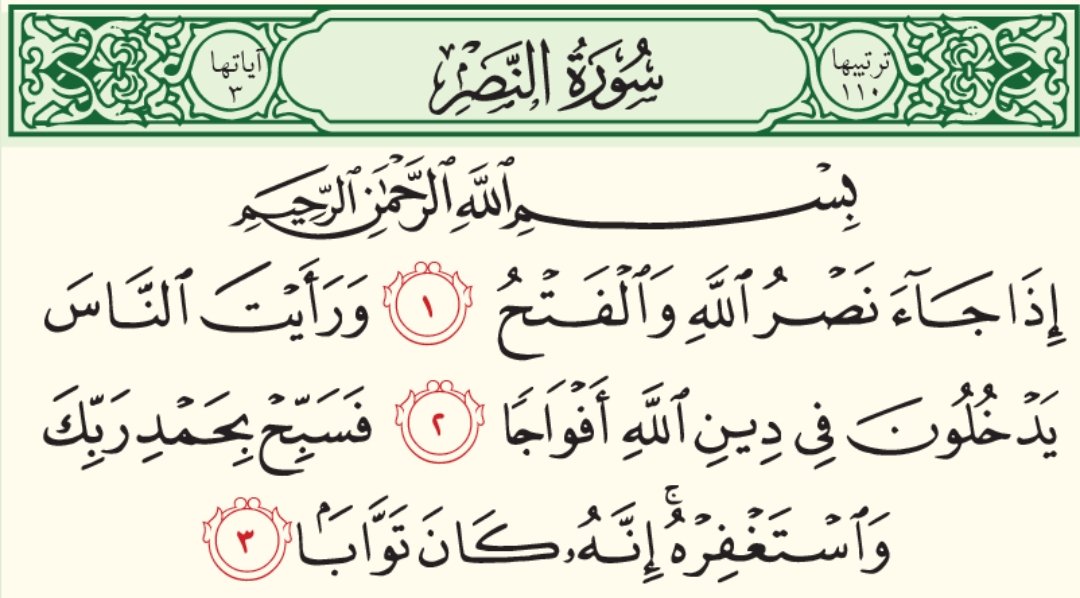 ترتيبها
١١٠
سُورَةُ النَّصْرِ
آياتها
٣
بِسْمِ ٱللَّهِ ٱلرَّحْمَٰنِ ٱلرَّحِيمِ
إِذَا جَآءَ نَصْرُ ٱللَّهِ وَٱلْفَتْحُ ١ وَرَأَيْتَ ٱلنَّاسَ
يَدْخُلُونَ فِي دِينِ ٱللَّهِ أَفْوَاجًا ٢ فَسَبِّحْ بِحَمْدِ رَبِّكَ
وَٱسْتَغْفِرْهُۚ إِنَّهُۥ كَانَ تَوَّابَۢا ٣